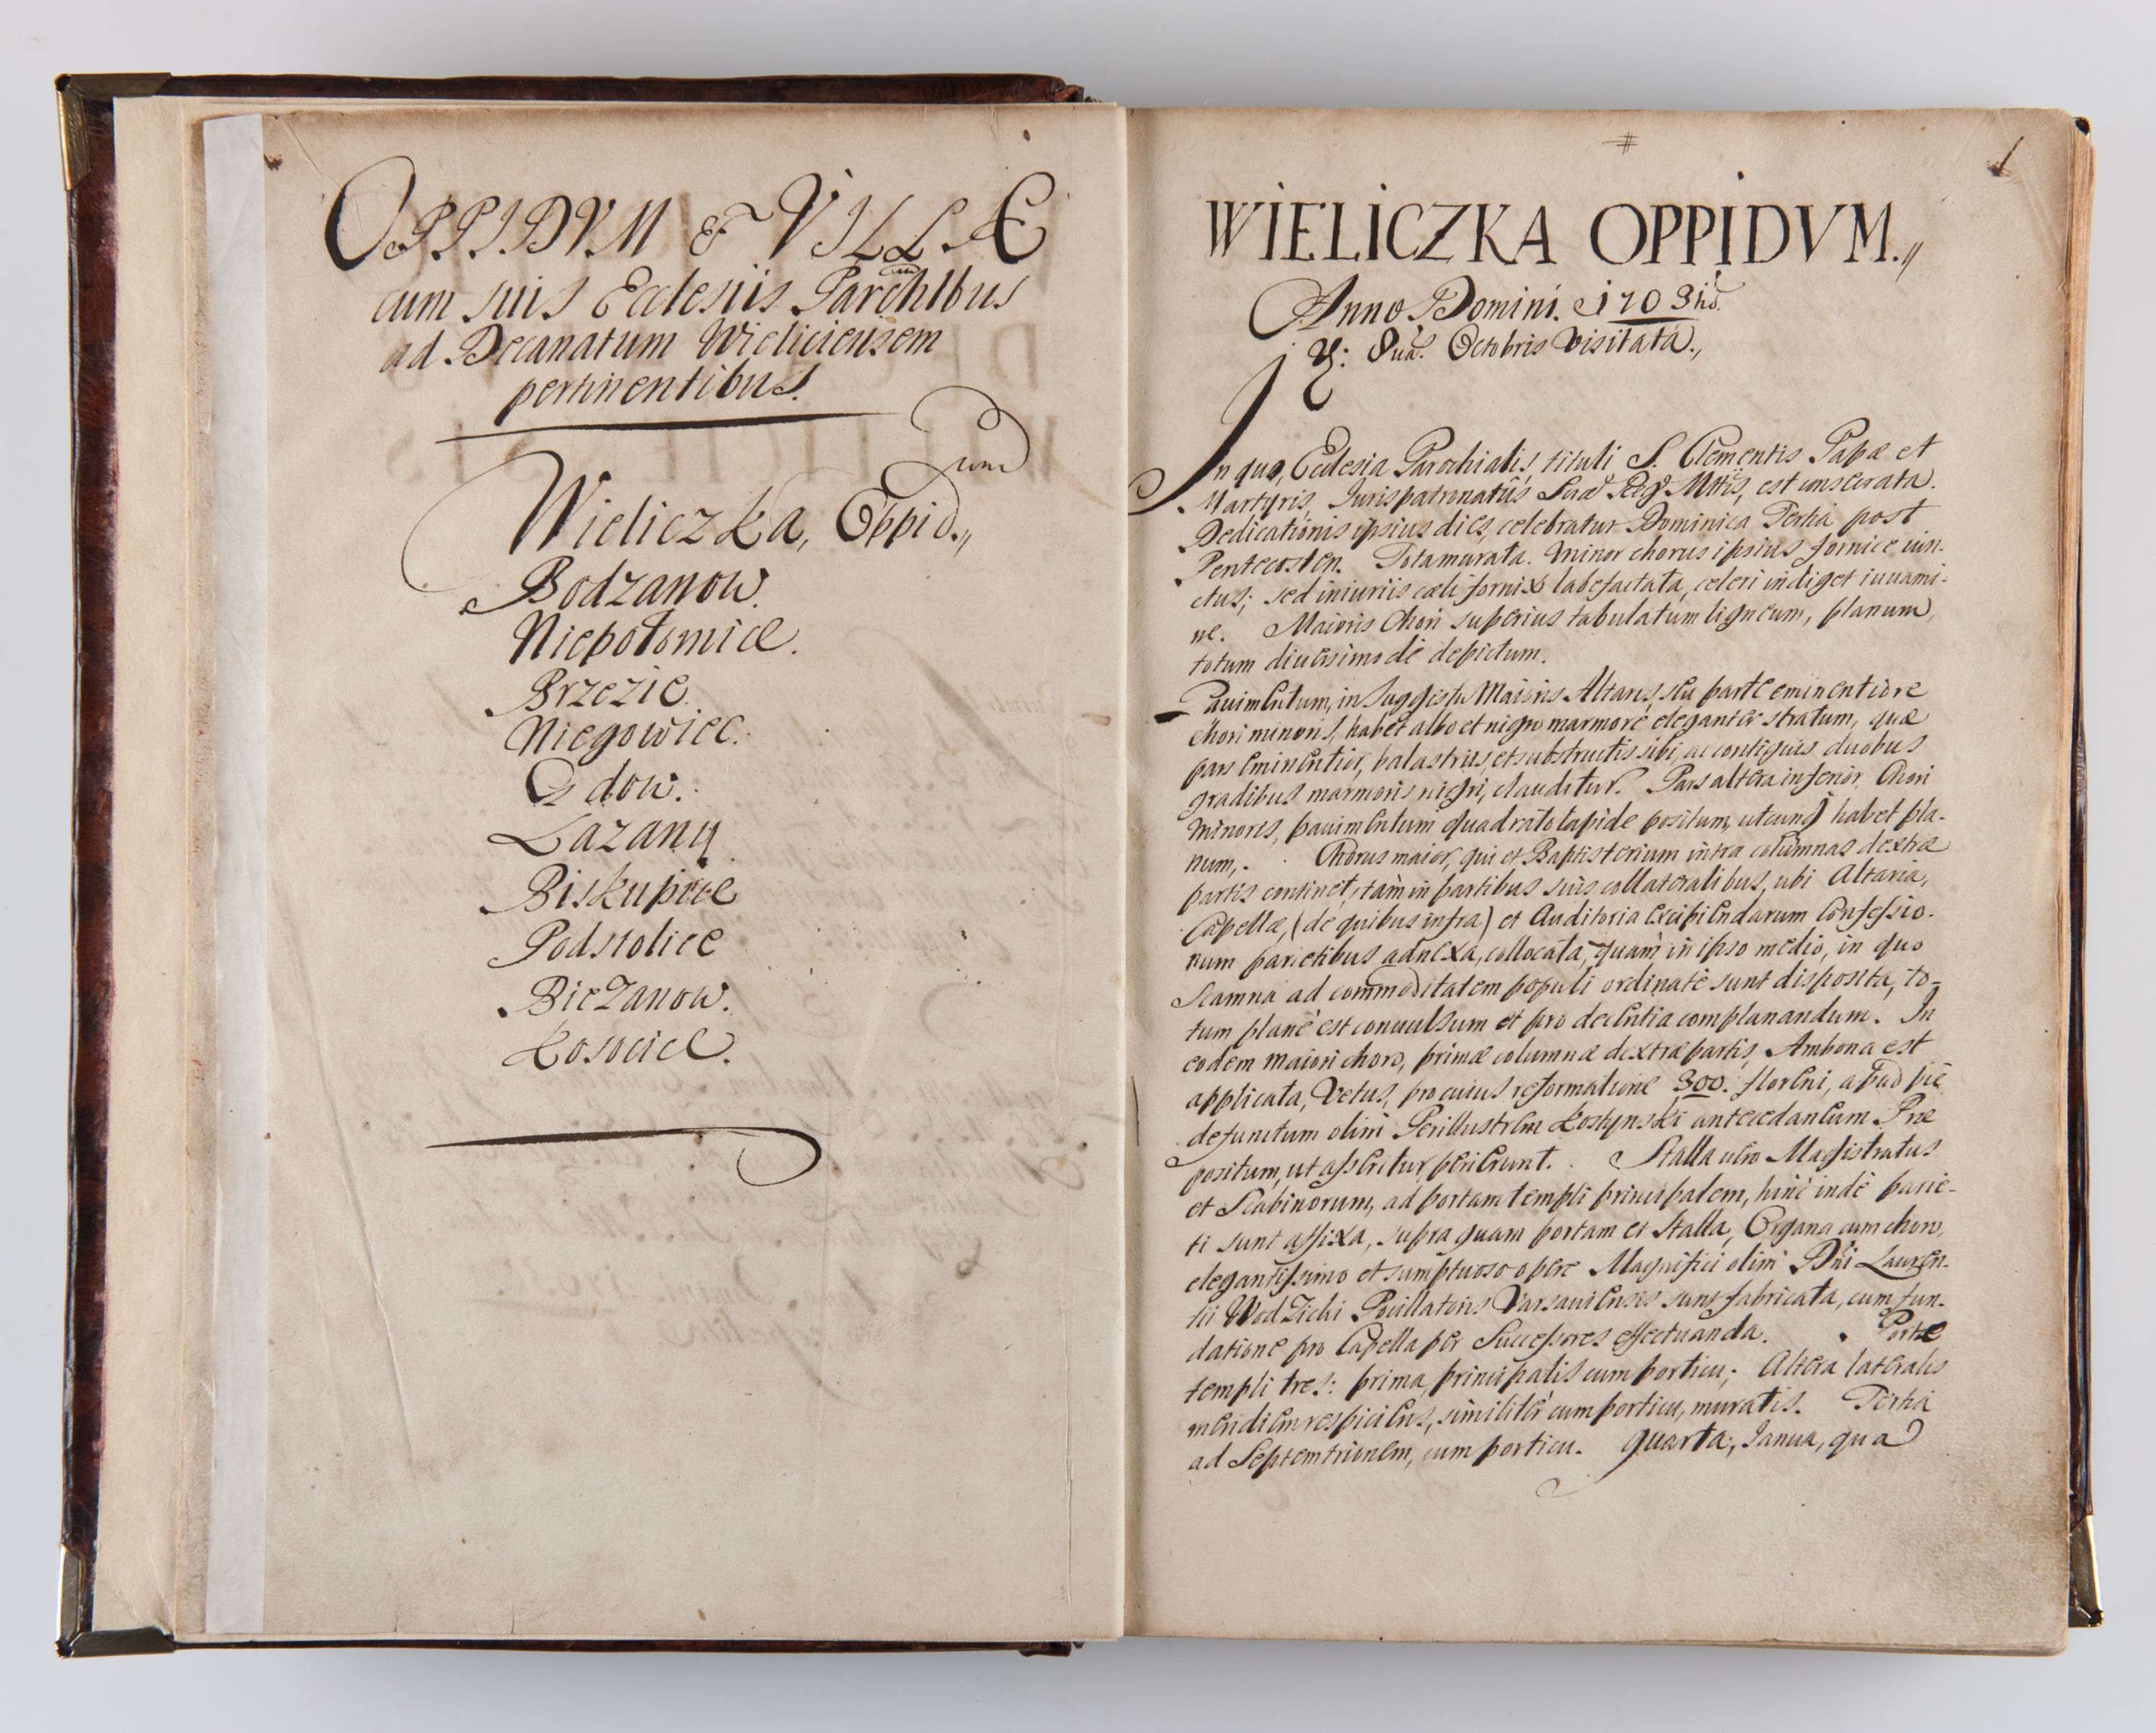 OPPIDVM & VILLÆ
cum suis Ecclesiis Parochlbus
ad Decanatum Wieliciensem
pertinentibus.
Wieliczka, Oppid.,, um
Bodzanow.
Niepołomice.
Brzezie.
Niegowiec.
Gdow.
Łazany
Biskupice
Podstolice
Bieżanow.
Kosocice.
#
1
WIELICZKA OPPIDVM.,,
Anno Domini. 1703tio.
8va. Octobris Visitata.,
In quo, Ecclesia Parochialis, tituli S. Clementis Papæ et
Martyris, Iurispatronatûs Sacæ Regæ Mttis, est consecrata.
Dedicationis ipsius dies, celebratur Dominica Tertia post
Pentecosten. Tota murata. Minor chorus ipsius fornice vin-
ctus; sed iniuriis cæli fornix labefactata, celeri indiget iuuami-
ne. Maioris Chori superius tabulatum ligneum, planum,
totum diuersimodè depictum.
Pauimentum, in suggestu Maioris Altaris, seu parte eminentiore
chori minoris, habet albo et nigro marmore eleganter stratum, quæ
pars eminentior, balastriis, et substructis sibi, ac contiguis duobus
gradibus marmoris nigri, clauditur. Pars altera inferior, Chori
minoris, pauimentum quadrato lapide positum, utcunq habet pla-
num,. Chorus maior, qui et Baptisterium intra columnas dextræ
partis continet, tàm in partibus suis collateralibus, ubi Altaria,
Capellæ, (de quibus infra) et Auditoria excipiendarum Confessio-
num parietibus adnexa, collocata, quàm in ipso medio, in quo
Scamna ad commoditatem populi ordinatè sunt disposita, to-
tum planè est conuulsum et pro decentia complanandum. In
eodem maiori choro, primæ columnæ dextræ partis, Ambona est
applicata, Vetus, pro cuius reformatione 300. floreni, apud piè
defunctum olim Perillustrem Kostynski antecedaneum Præ
positum, ut asseritur, perierunt. Stalla uero Magistratus
et Scabinorum, ad portam templi principalem, hinc indè parie-
ti sunt affixa, supra quam portam et Stalla, Organa cum choro,
elegantissimo et sumptuoso opere Magnifici olim Dni Lauren-
tii Wodzicki Pocillatoris Varsauiensis sunt fabricata, cum fun-
datione pro Capella per Successores effectuanda. Portæ
templi tres: prima, principalis cum porticu; Altera lateralis
meridiem respiciens, similiter cum porticu, muratis. Tertia
ad Septemtrionem, cum porticu. Quarta, Ianua, qua